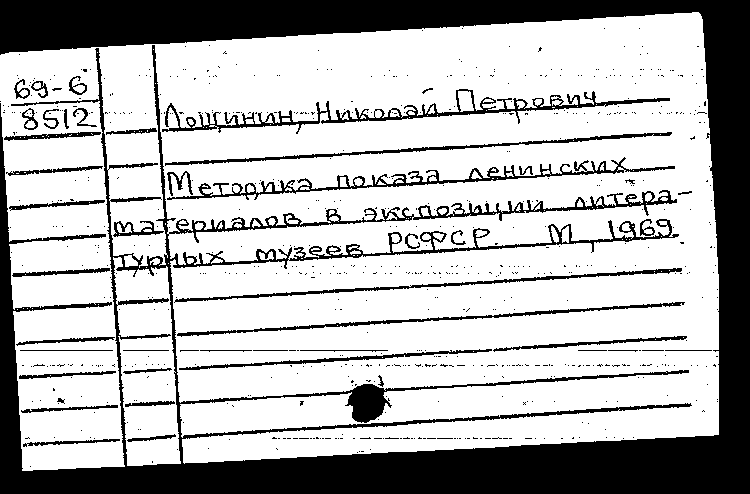 69-6
8512
Лощинин, Николай Петрович
Методика показа ленинских
материалов в экспозиции литера-
турных музеев РСФСР. М, 1969.